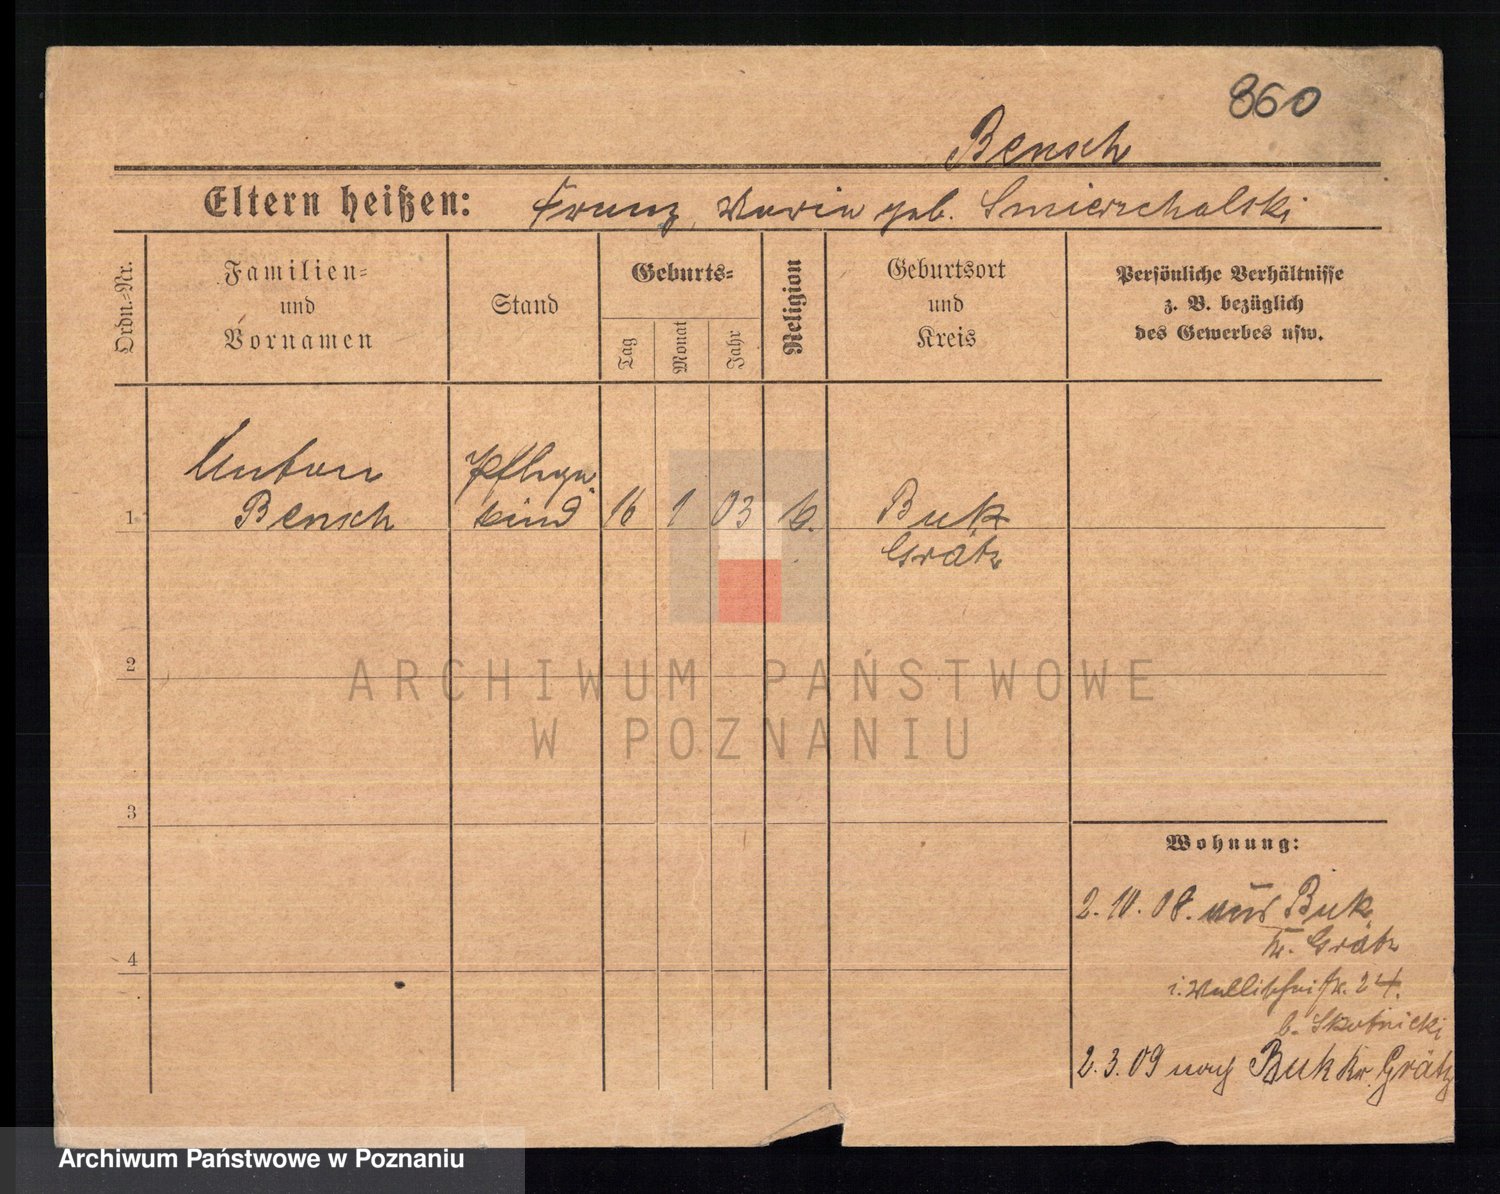 860
Bensch
Eltern heißen: Franz, Maria geb. Smierzchalski
Ordn.-Nr.
Familien-
und
Vornamen
Stand
Geburts-
Tag
Monat
Jahr
Religion
Geburtsort
und
Kreis
Persönliche Verhältnisse
z. B. bezüglich
des Gewerbes usw.
Anton Pflege-
1 Bensch kind 16 1 03 k. Buk
Grätz
2
3
4
Wohnung:
2.10.08. aus Buk
Kr. Grätz
i. Wallischei 24.
b. Skotnicki
2.3.09 nach Buk Kr. Grätz
ARCHIWUM PAŃSTWOWE
W POZNANIU
Archiwum Państwowe w Poznaniu